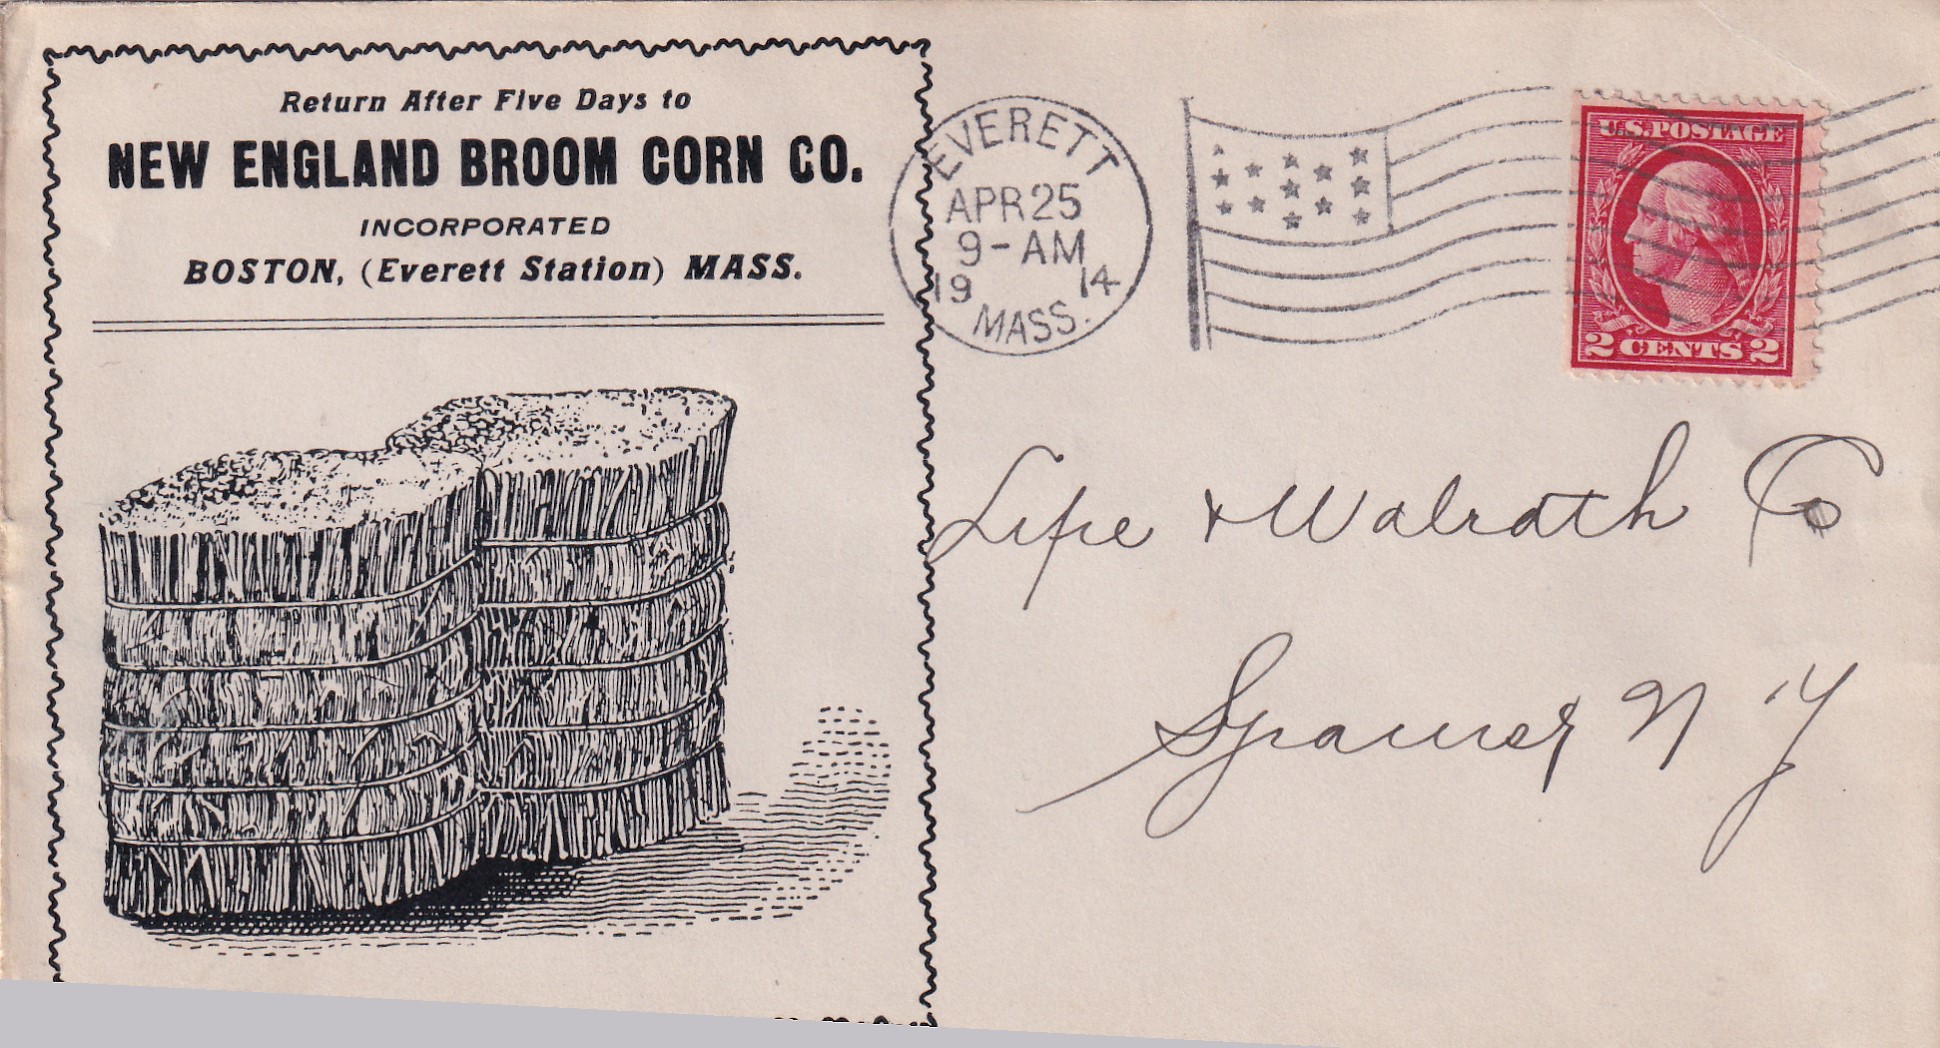 Return After Five Days to
NEW ENGLAND BROOM CORN CO.
INCORPORATED
BOSTON, (Everett Station) MASS.
EVERETT
APR 25
9-AM
19 14
MASS.
U.S.POSTAGE
2 CENTS 2
Lipe & Walrath Co
N Y